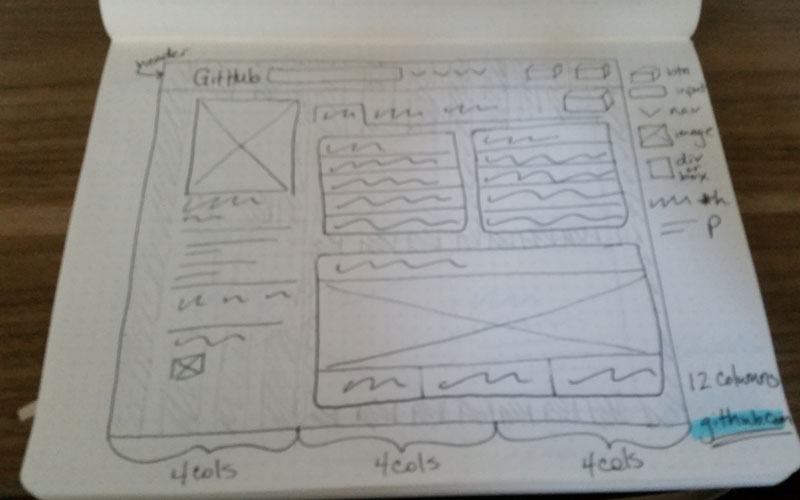 header
GitHub
btn
input
nav
image
div
or
box
h
p
12 columns
github.com
4cols
4cols
4cols